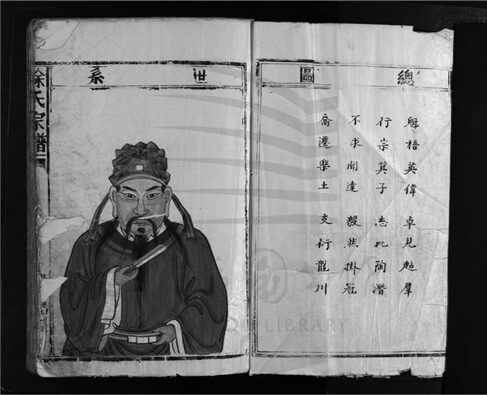 總圖
魁梧英偉 卓見超羣
行宗箕子 志比陶潛
不求聞達 毅然掛冠
喬遷樂土 支衍龍川
世系
徐氏宗譜
LIBRARY